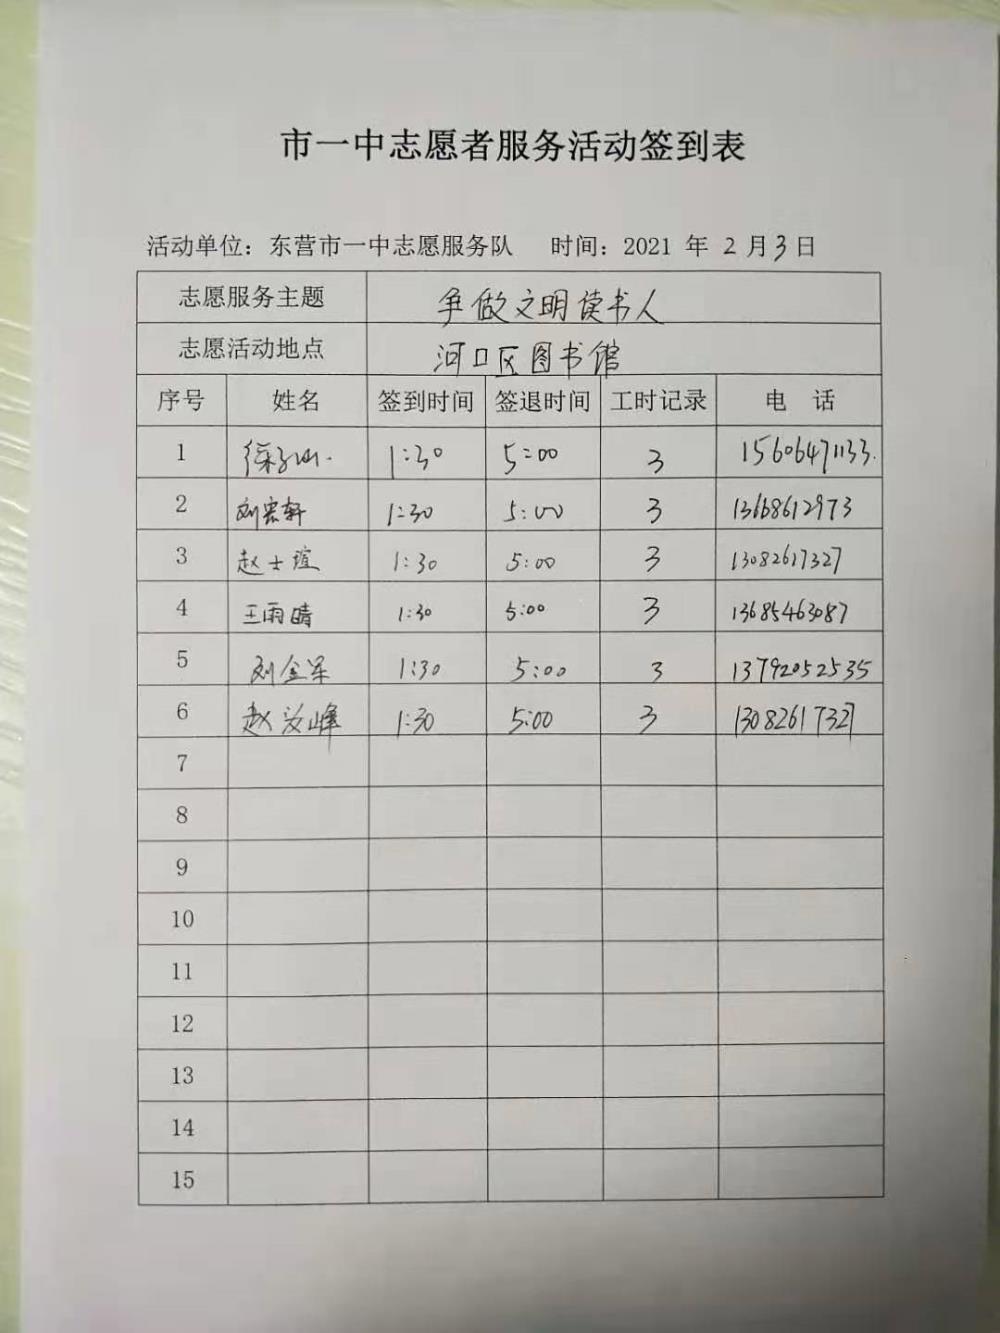 市一中志愿者服务活动签到表
活动单位：东营市一中志愿服务队 时间：2021 年 2 月 3 日
志愿服务主题 争做文明读书人
志愿活动地点 河口区图书馆
序号 姓名 签到时间 签退时间 工时记录 电 话
1 1:30 5:00 3 15606471133.
2 刘宏轩 1:30 5:00 3 13168612973
3 赵士谊 1:30 5:00 3 13082617327
4 王雨晴 1:30 5:00 3 13685463087
5 刘金军 1:30 5:00 3 13792052535
6 赵汝峰 1:30 5:00 3 13082617327
7
8
9
10
11
12
13
14
15